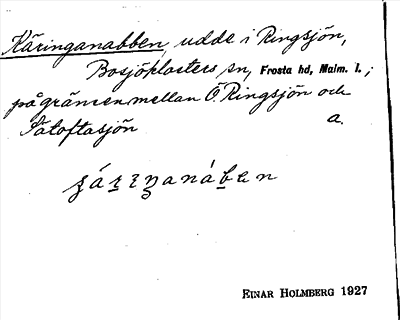 Käringanabben, udde i Ringsjön,
Bosjöklosters sn, Frosta hd, Malm. l.;
på gränsen mellan Ö. Ringsjön och
Sätoftasjön a.
EINAR HOLMBERG 1927